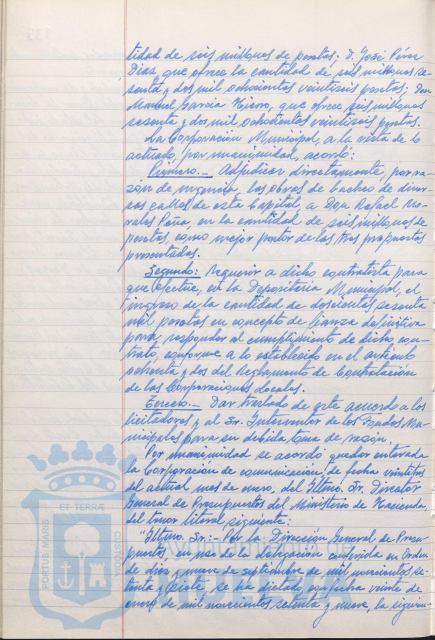 tidad de seis millones de pesetas; D. José Pérez
Díaz, que ofrece la cantidad de seis millones se-
senta y dos mil ochocientas veintiseis pesetas; Don
Manuel García Hierro, que ofrece seis millones
sesenta y dos mil ochocientas veintiseis pesetas.
La Corporación Municipal, a la vista de lo
actuado, por unanimidad, acordó:
Primero.- Adjudicar directamente, por ra-
zón de urgencia, las obras de bacheo de diver-
sas calles de esta Capital, a Don Rafael Mo-
rales Peña, en la cantidad de seis millones de
pesetas, como mejor postor de las tres propuestas
presentadas.
Segundo: Requerir a dicho contratista para
que efectúe, en la Depositaría Municipal, el
ingreso de la cantidad de doscientas sesenta
mil pesetas en concepto de fianza definitiva
para responder al cumplimiento de dicho con-
trato, conforme a lo establecido en el artículo
ochenta y dos del Reglamento de Contratación
de las Corporaciones Locales.
Tercero.- Dar traslado de este acuerdo a los
licitadores y al Sr. Interventor de los Fondos Mu-
nicipales para su debida toma de razón.
Por unanimidad se acordó quedar enterada
la Corporación de comunicación, de fecha veintitrés
del actual mes de enero, del Iltmo. Sr. Director
General de Presupuestos del Ministerio de Hacienda,
del tenor literal siguiente:
"Iltmo. Sr.:- Por la Dirección General de Presu-
puestos, en uso de la delegación conferida en Orden
de diez y nueve de septiembre de mil novecientos se-
tenta y siete, se ha dictado, con fecha veinte de
enero de mil novecientos setenta y nueve, la siguien-
ET TERRÆ
PORTUS MARIS
CUSTODIA